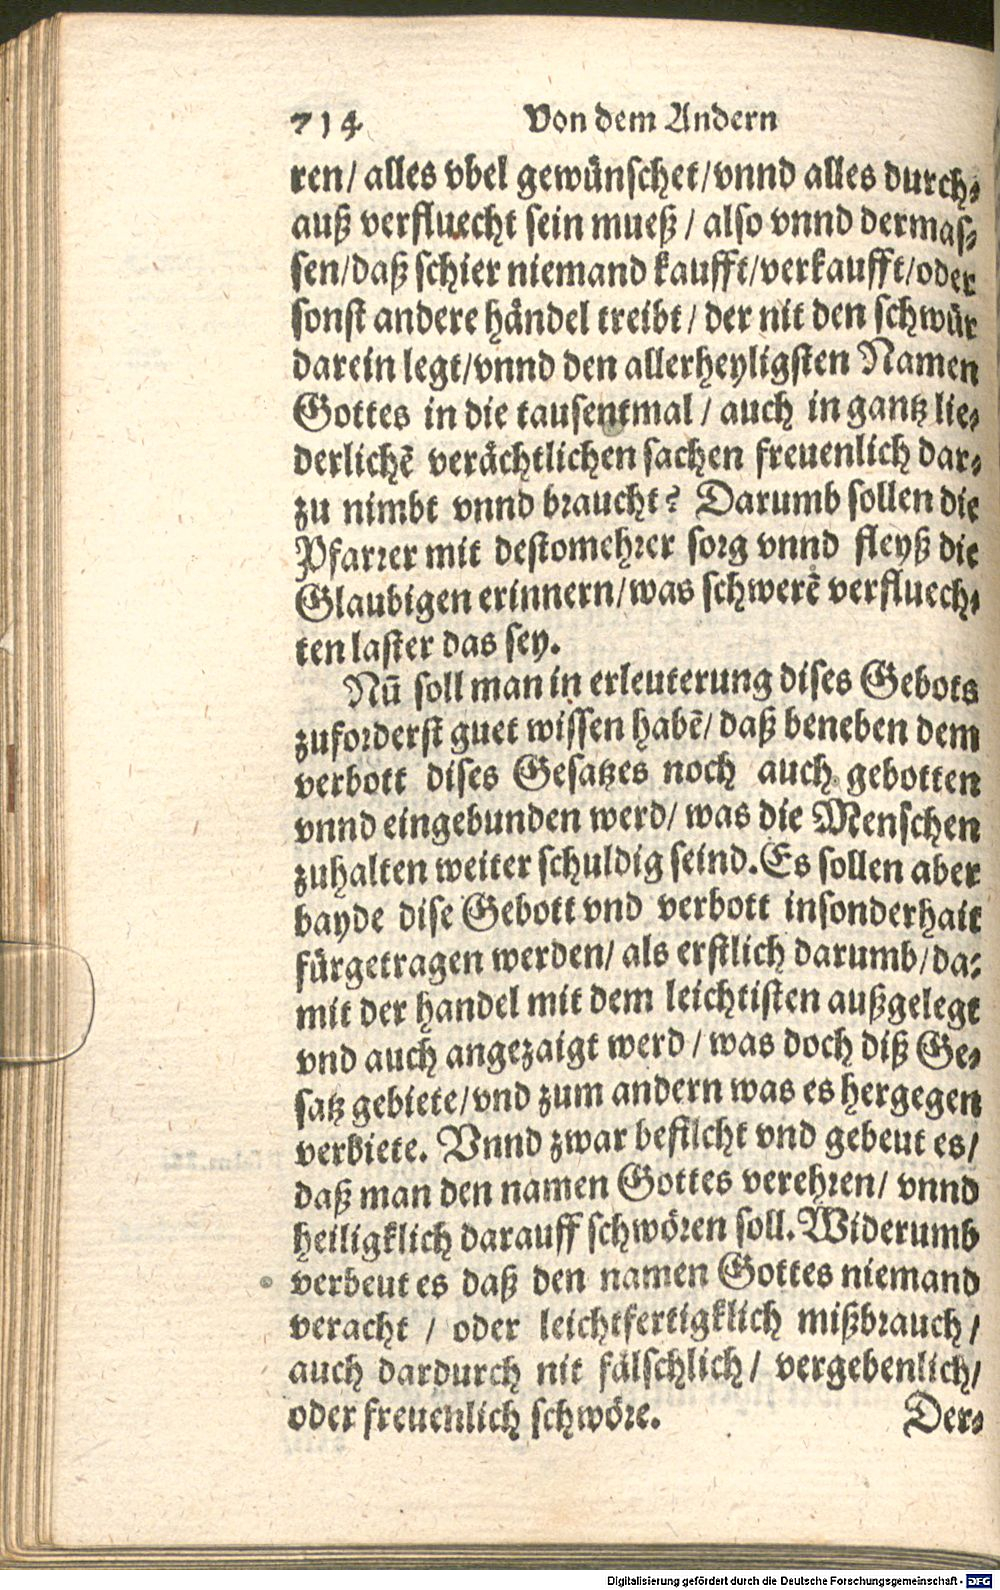 714 Von dem Andern
ren/ alles vbel gewünschet/vnnd alles durch-
auß verfluecht sein mueß / also vnnd dermas-
sen/daß schier niemand kaufft/verkaufft/oder
sonst andere händel treibt / der nit den schwür
darein legt/vnnd den allerheyligsten Namen
Gottes in die tausentmal / auch in gantz lie-
derlichẽ verächtlichen sachen freuenlich dar-
zu nimbt vnnd braucht? Darumb sollen die
Pfarrer mit destomehrer sorg vnnd fleyß die
Glaubigen erinnern/was schwerẽ verfluech-
ten laster das sey.
Nũ soll man in erleuterung dises Gebots
zuforderst guet wissen habẽ/ daß beneben dem
verbott dises Gesatzes noch auch gebotten
vnnd eingebunden werd/ was die Menschen
zuhalten weiter schuldig seind. Es sollen aber
bayde dise Gebott vnd verbott insonderhait
fürgetragen werden/ als erstlich darumb/da-
mit der handel mit dem leichtisten außgelegt
vnd auch angezaigt werd / was doch diß Ge-
satz gebiete/vnd zum andern was es hergegen
verbiete. Vnnd zwar befilcht vnd gebeut es/
daß man den namen Gottes verehren/ vnnd
heiligklich darauff schwören soll. Widerumb
verbeut es daß den namen Gottes niemand
veracht / oder leichtfertigklich mißbrauch/
auch dardurch nit fälschlich/ vergebenlich/
oder freuenlich schwöre. Der-
Digitalisierung gefördert durch die Deutsche Forschungsgemeinschaft - DFG